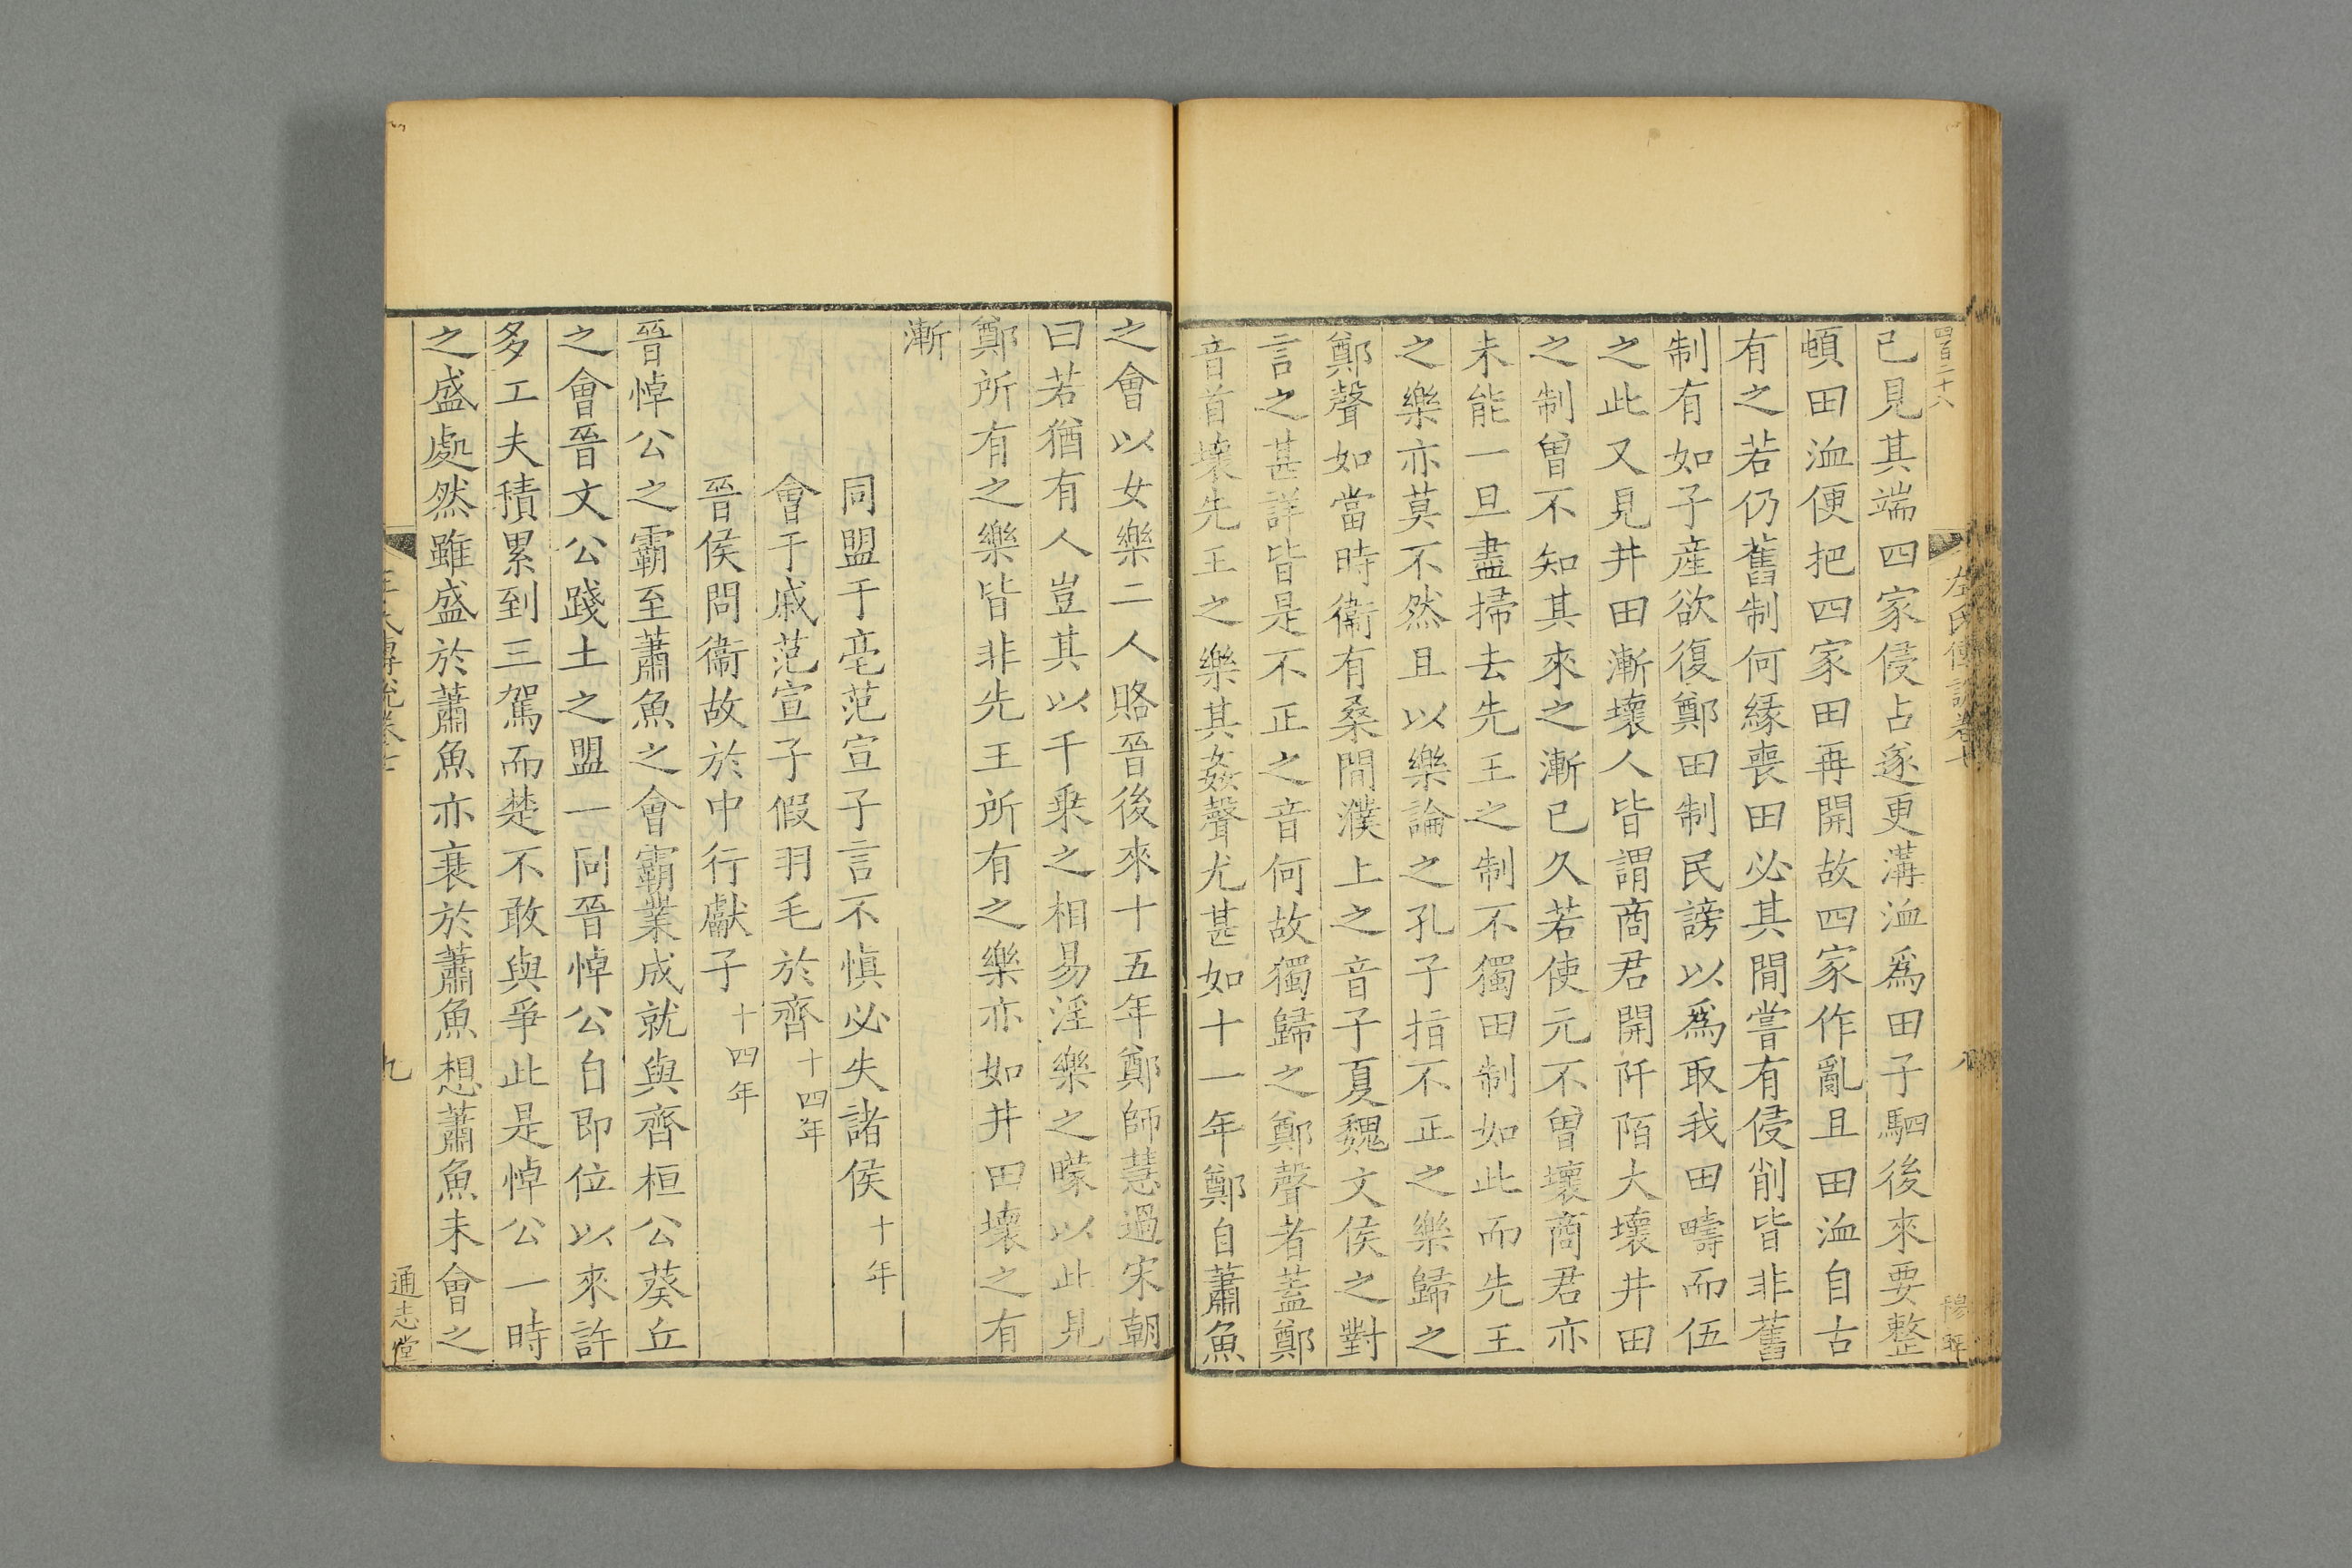 四百二十八
左氏傳說卷七
八
穆
已見其端四家侵占遂更溝洫爲田子駟後來要整
頓田洫便把四家田再開故四家作亂且田洫自古
有之若仍舊制何緣喪田必其間嘗有侵削皆非舊
制有如子産欲復鄭田制民謗以爲取我田疇而伍
之此又見井田漸壞人皆謂商君開阡陌大壞井田
之制曾不知其來之漸已久若使元不曾壞商君亦
未能一旦盡掃去先王之制不獨田制如此而先王
之樂亦莫不然且以樂論之孔子指不正之樂歸之
鄭聲如當時衞有桑閒濮上之音子夏魏文侯之對
言之甚詳皆是不正之音何故獨歸之鄭聲者蓋鄭
音首壞先王之樂其姦聲尤甚如十一年鄭自蕭魚
之會以女樂二人賂晉後來十五年鄭師慧過宋朝
曰若猶有人豈其以千乘之相易淫樂之矇以此見
鄭所有之樂皆非先王所有之樂亦如井田壞之有
漸
同盟于亳范宣子言不愼必失諸侯十年
會于戚范宣子假羽毛於齊十四年
晉侯問衞故於中行獻子十四年
晉悼公之霸至蕭魚之會霸業成就與齊桓公葵丘
之會晉文公踐土之盟一同晉悼公自即位以來許
多工夫積累到三駕而楚不敢與爭此是悼公一時
之盛處然雖盛於蕭魚亦衰於蕭魚想蕭魚未會之
左氏傳說卷七
九
通志堂